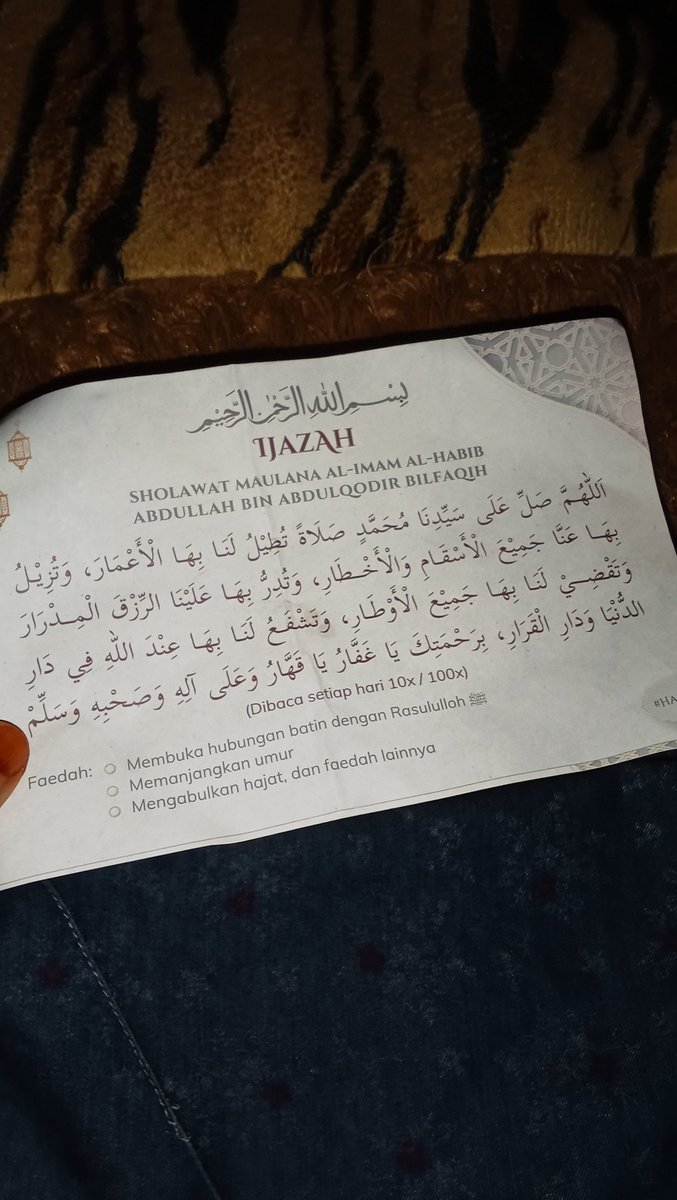 بِسْــمِ اللهِ الرَّحْمٰنِ الرَّحِيْمِ
IJAZAH
SHOLAWAT MAULANA AL-IMAM AL-HABIB
ABDULLAH BIN ABDULQODIR BILFAQIH
اَللّٰهُمَّ صَلِّ عَلَى سَيِّدِنَا مُحَمَّدٍ صَلَاةً تُطِيْلُ لَنَا بِهَـا الْأَعْمَارَ، وَتُزِيْـلُ
بِهَـا عَنَّا جَمِيْعَ الْأَسْقَامِ وَالْأَخْـطَارِ، وَتُدِرُّ بِهَـا عَلَيْنَا الرِّزْقَ الْمِـدْرَارَ
وَتَقْضِـيْ لَنَا بِهَـا جَمِيْعَ الْأَوْطَارِ، وَتَشْفَـعُ لَنَـا بِهَـا عِنْدَ اللهِ فِي دَارِ
الدُّنْيَا وَدَارِ الْقَرَارِ، بِرَحْمَتِكَ يَا غَفَّارُ يَا قَهَّارُ وَعَلَى آلِهِ وَصَحْبِهِ وَسَلِّمْ
(Dibaca setiap hari 10x / 100x)
Faedah: ○ Membuka hubungan batin dengan Rasululloh ﷺ
○ Memanjangkan umur
○ Mengabulkan hajat, dan faedah lainnya